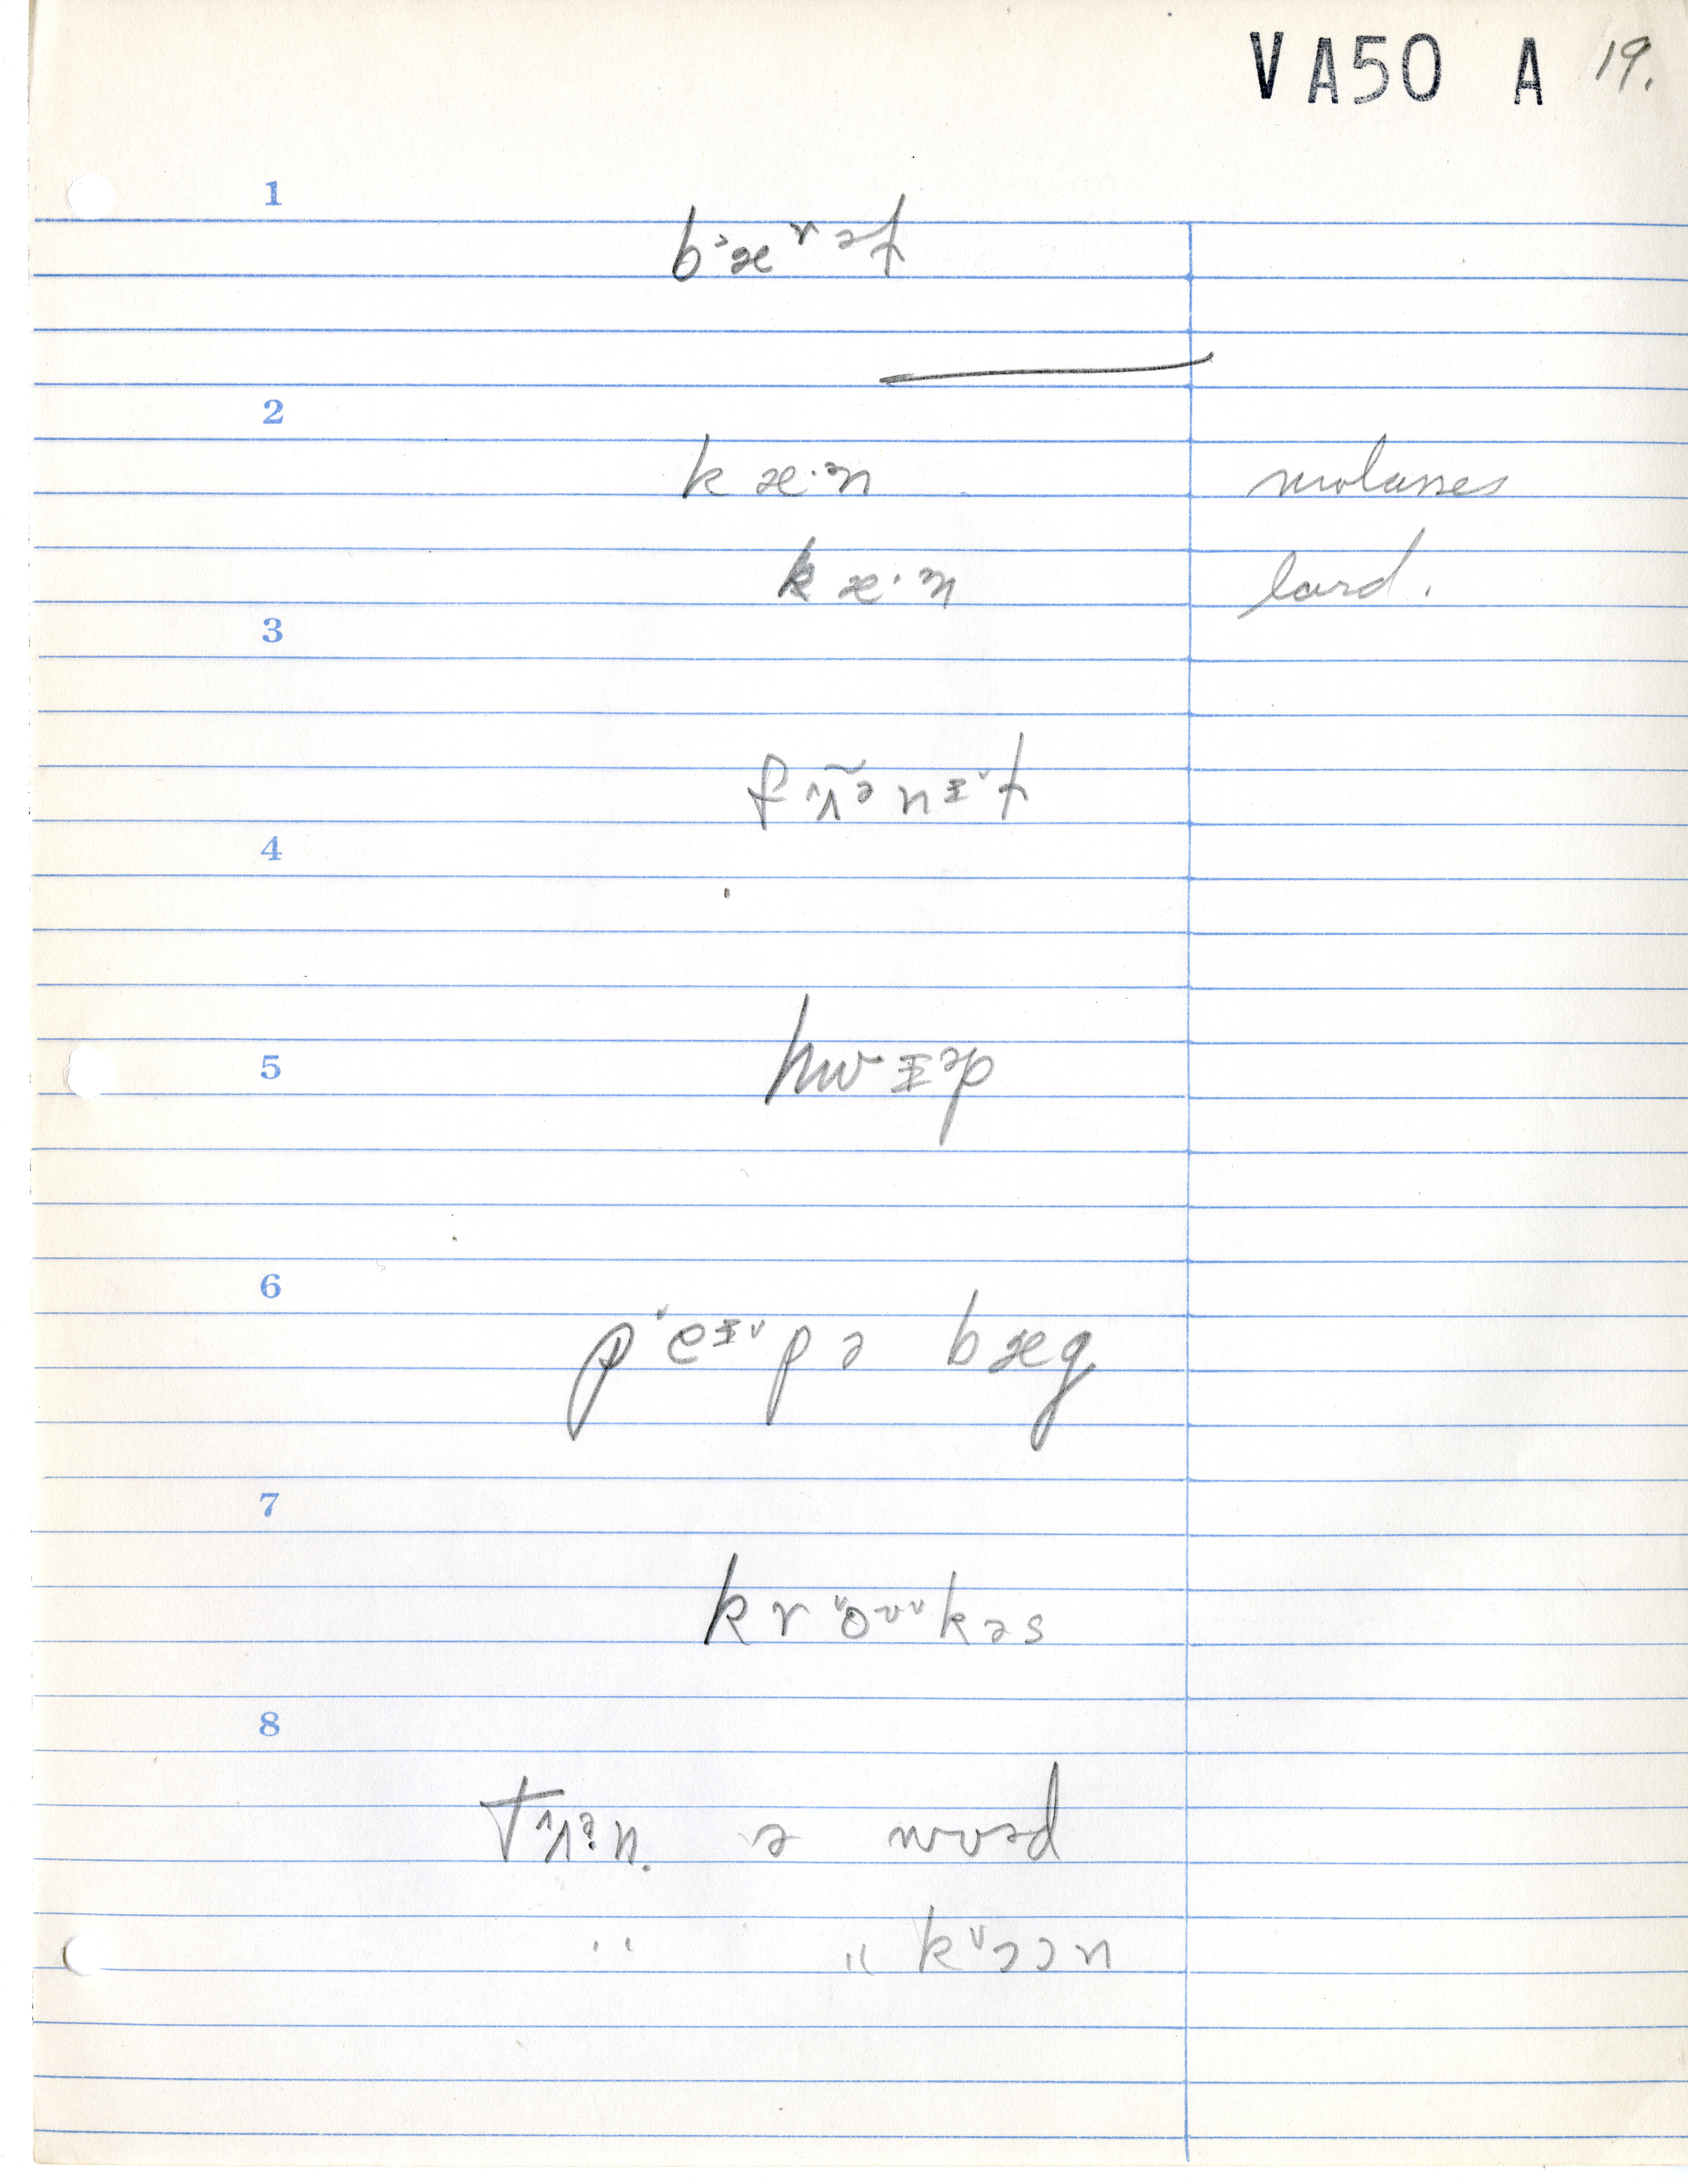 VA50 A 19.
1
b˃æɤət
2
kæ·n molasses
kæ·n lard.
3
fʌ̃ənɪ˅t
4
5
hwɪəp
6
p˅eɪ˅pə bæg
7
kr˅oʊ˅kəs
8
tʌən. ə wʊəd
" " k˅ɔɔn